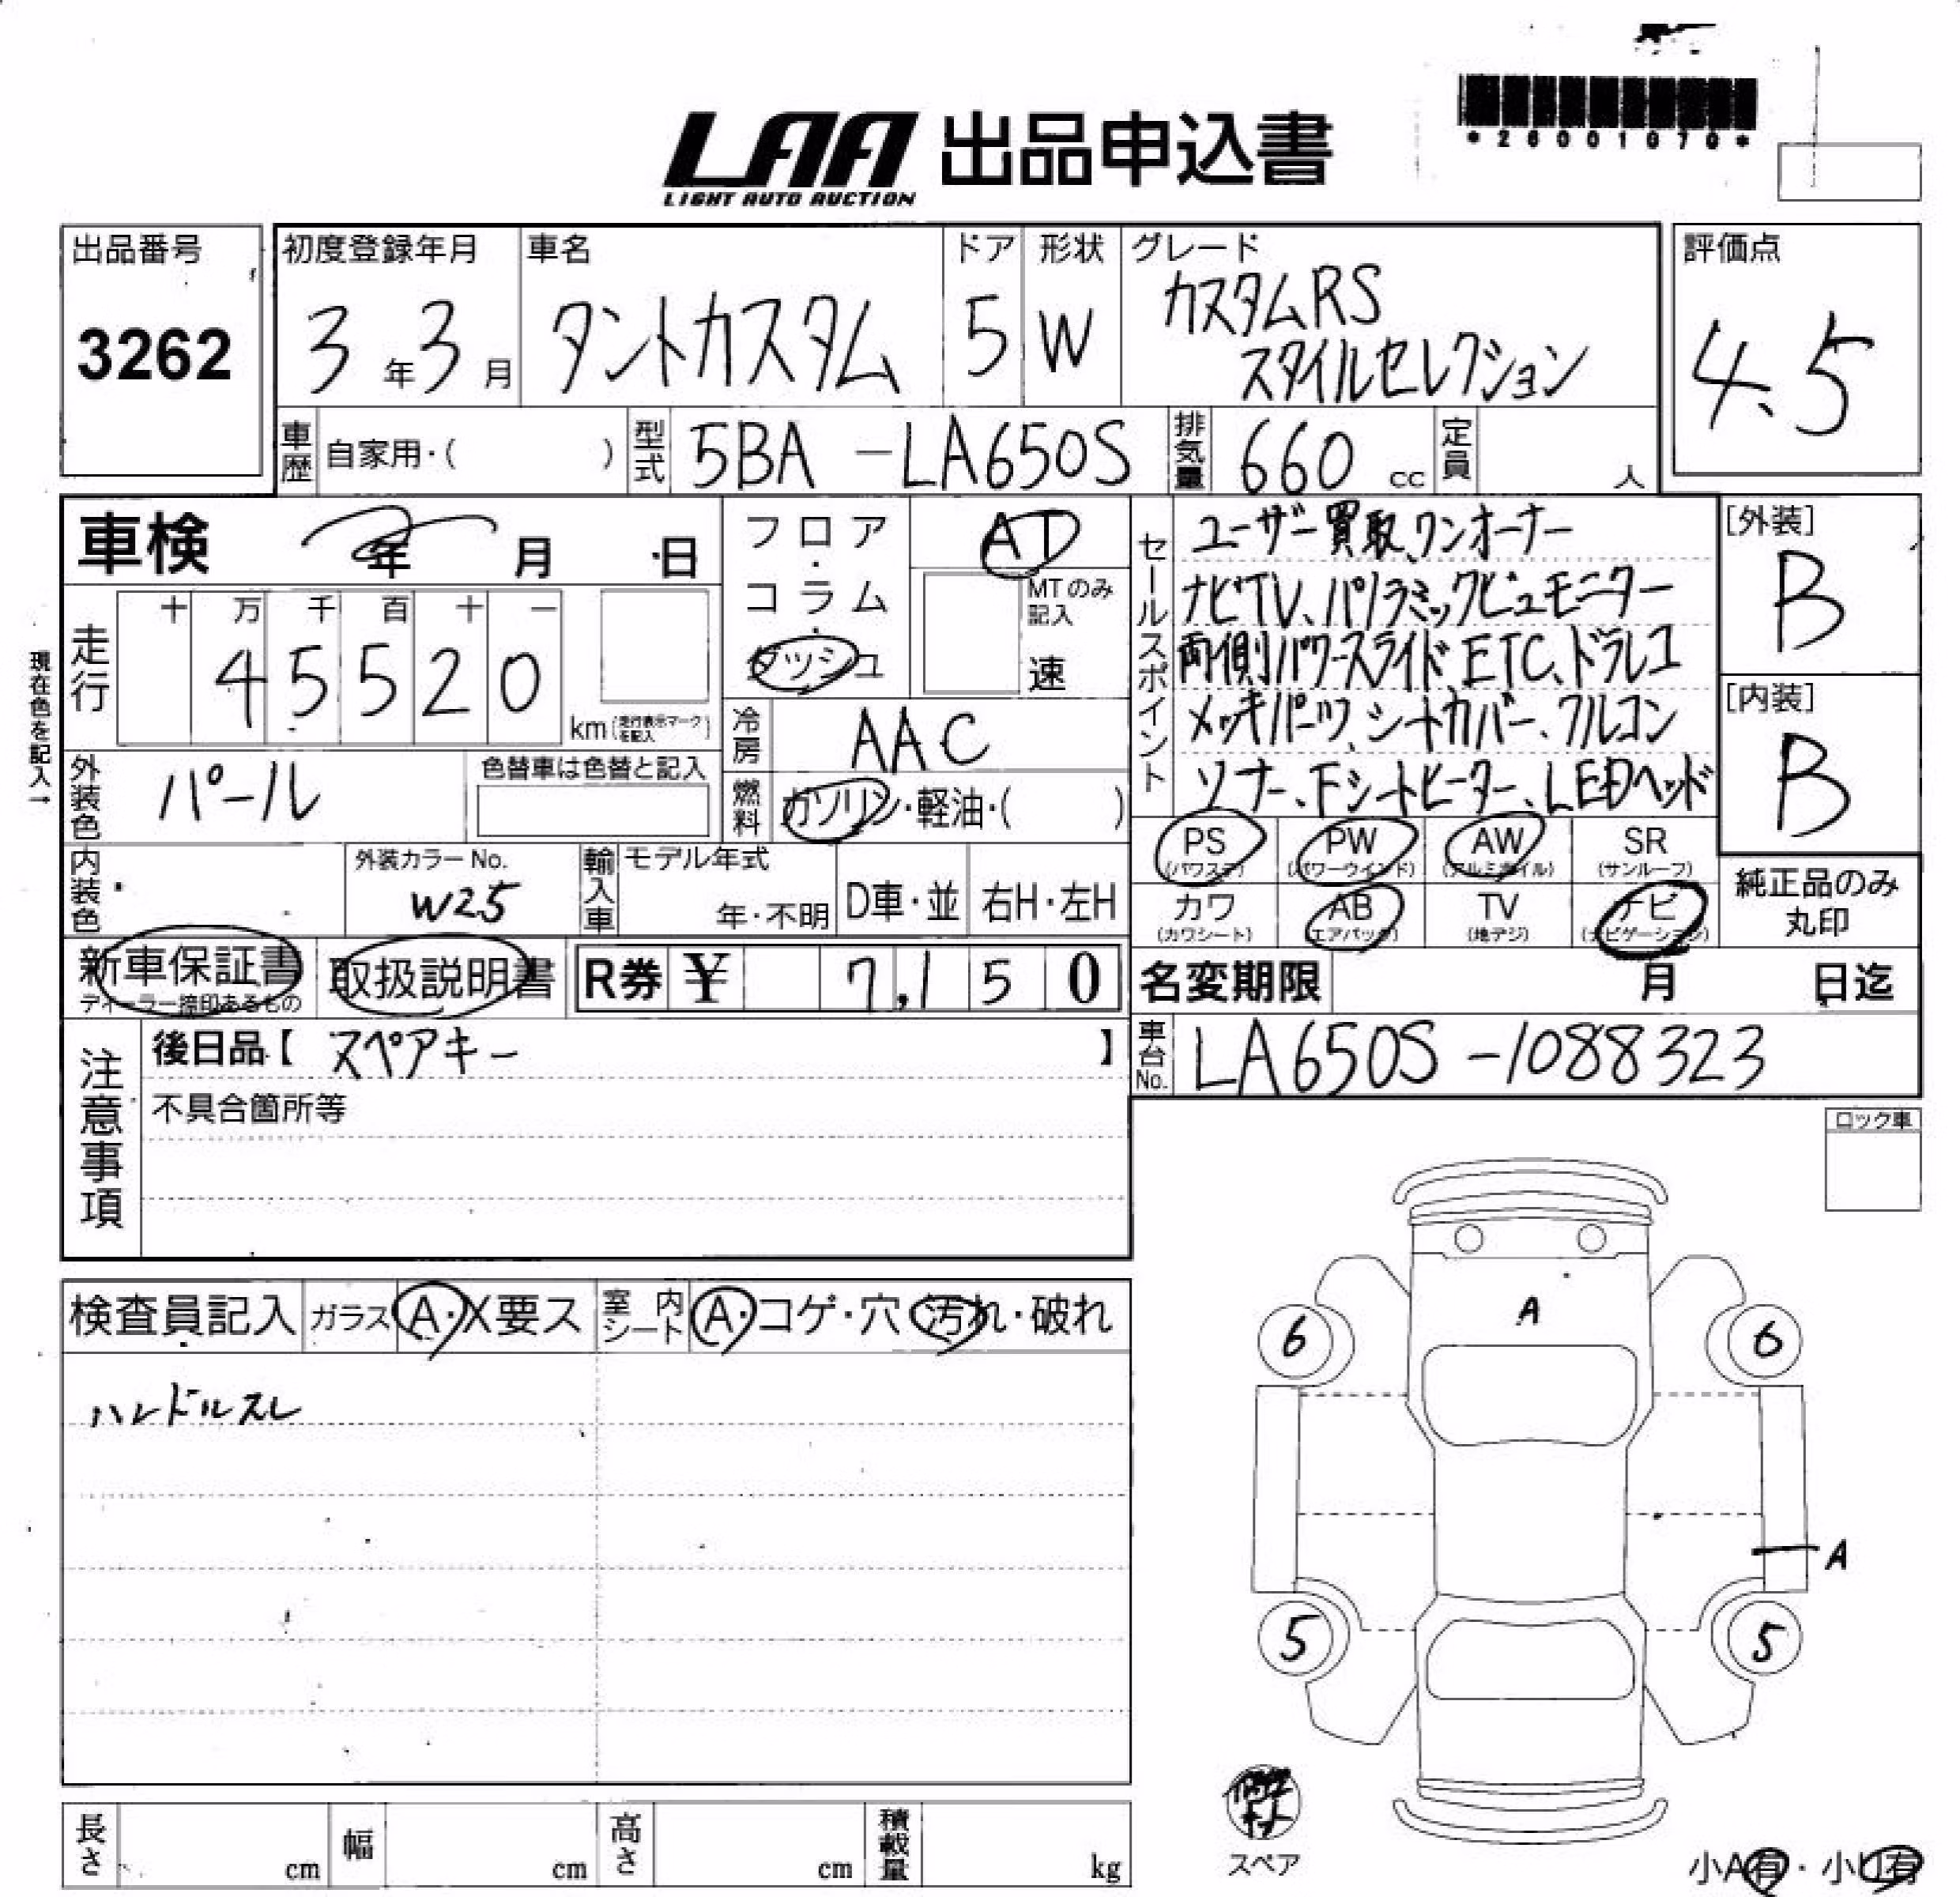 LAA 出品申込書
LIGHT AUTO AUCTION
*26001070*
出品番号
3262
初度登録年月
3年3月
車名
タントカスタム
ドア
5
形状
W
グレード
カスタムRS
スタイルセレクション
評価点
4.5
車歴 自家用・( )
型式 5BA-LA650S
排気量 660 cc
定員 人
車検 年 月 日
フロア・コラム・ダッシュ
AT
MTのみ記入
速
セールスポイント
ユーザー買取、ワンオーナー
ナビTV、パノラミックビュモニター
両側パワースライド ETC、ドラレコ
メッキパーツ、シートカバー、フルコン
ソナー、Fシートヒーター、LEDヘッド
[外装]
B
[内装]
B
現在色を記入→
走行
十 万 千 百 十 一
45520
km(走行表示マークを記入)
冷房 AAC
外装色 パール
色替車は色替と記入
燃料 ガソリン・軽油・( )
PS (パワステ)
PW (パワーウインド)
AW (アルミホイル)
SR (サンルーフ)
カワ (カワシート)
AB (エアバック)
TV (地デジ)
ナビ (ナビゲーション)
純正品のみ丸印
内装色
外装カラーNo.
W25
輸入車
モデル年式
年・不明
D車・並
右H・左H
新車保証書
ディーラー捺印あるもの
取扱説明書
R券 ¥ 7,150
名変期限 月 日迄
注意事項
後日品【 スペアキー 】
不具合箇所等
車台No. LA650S-1088323
ロック車
検査員記入
ガラス A・X要ス
室内シート A・コゲ・穴・汚れ・破れ
ハンドルスレ
A
6
6
A
5
5
スペア
小A有・小U有
長さ cm
幅 cm
高さ cm
積載量 kg